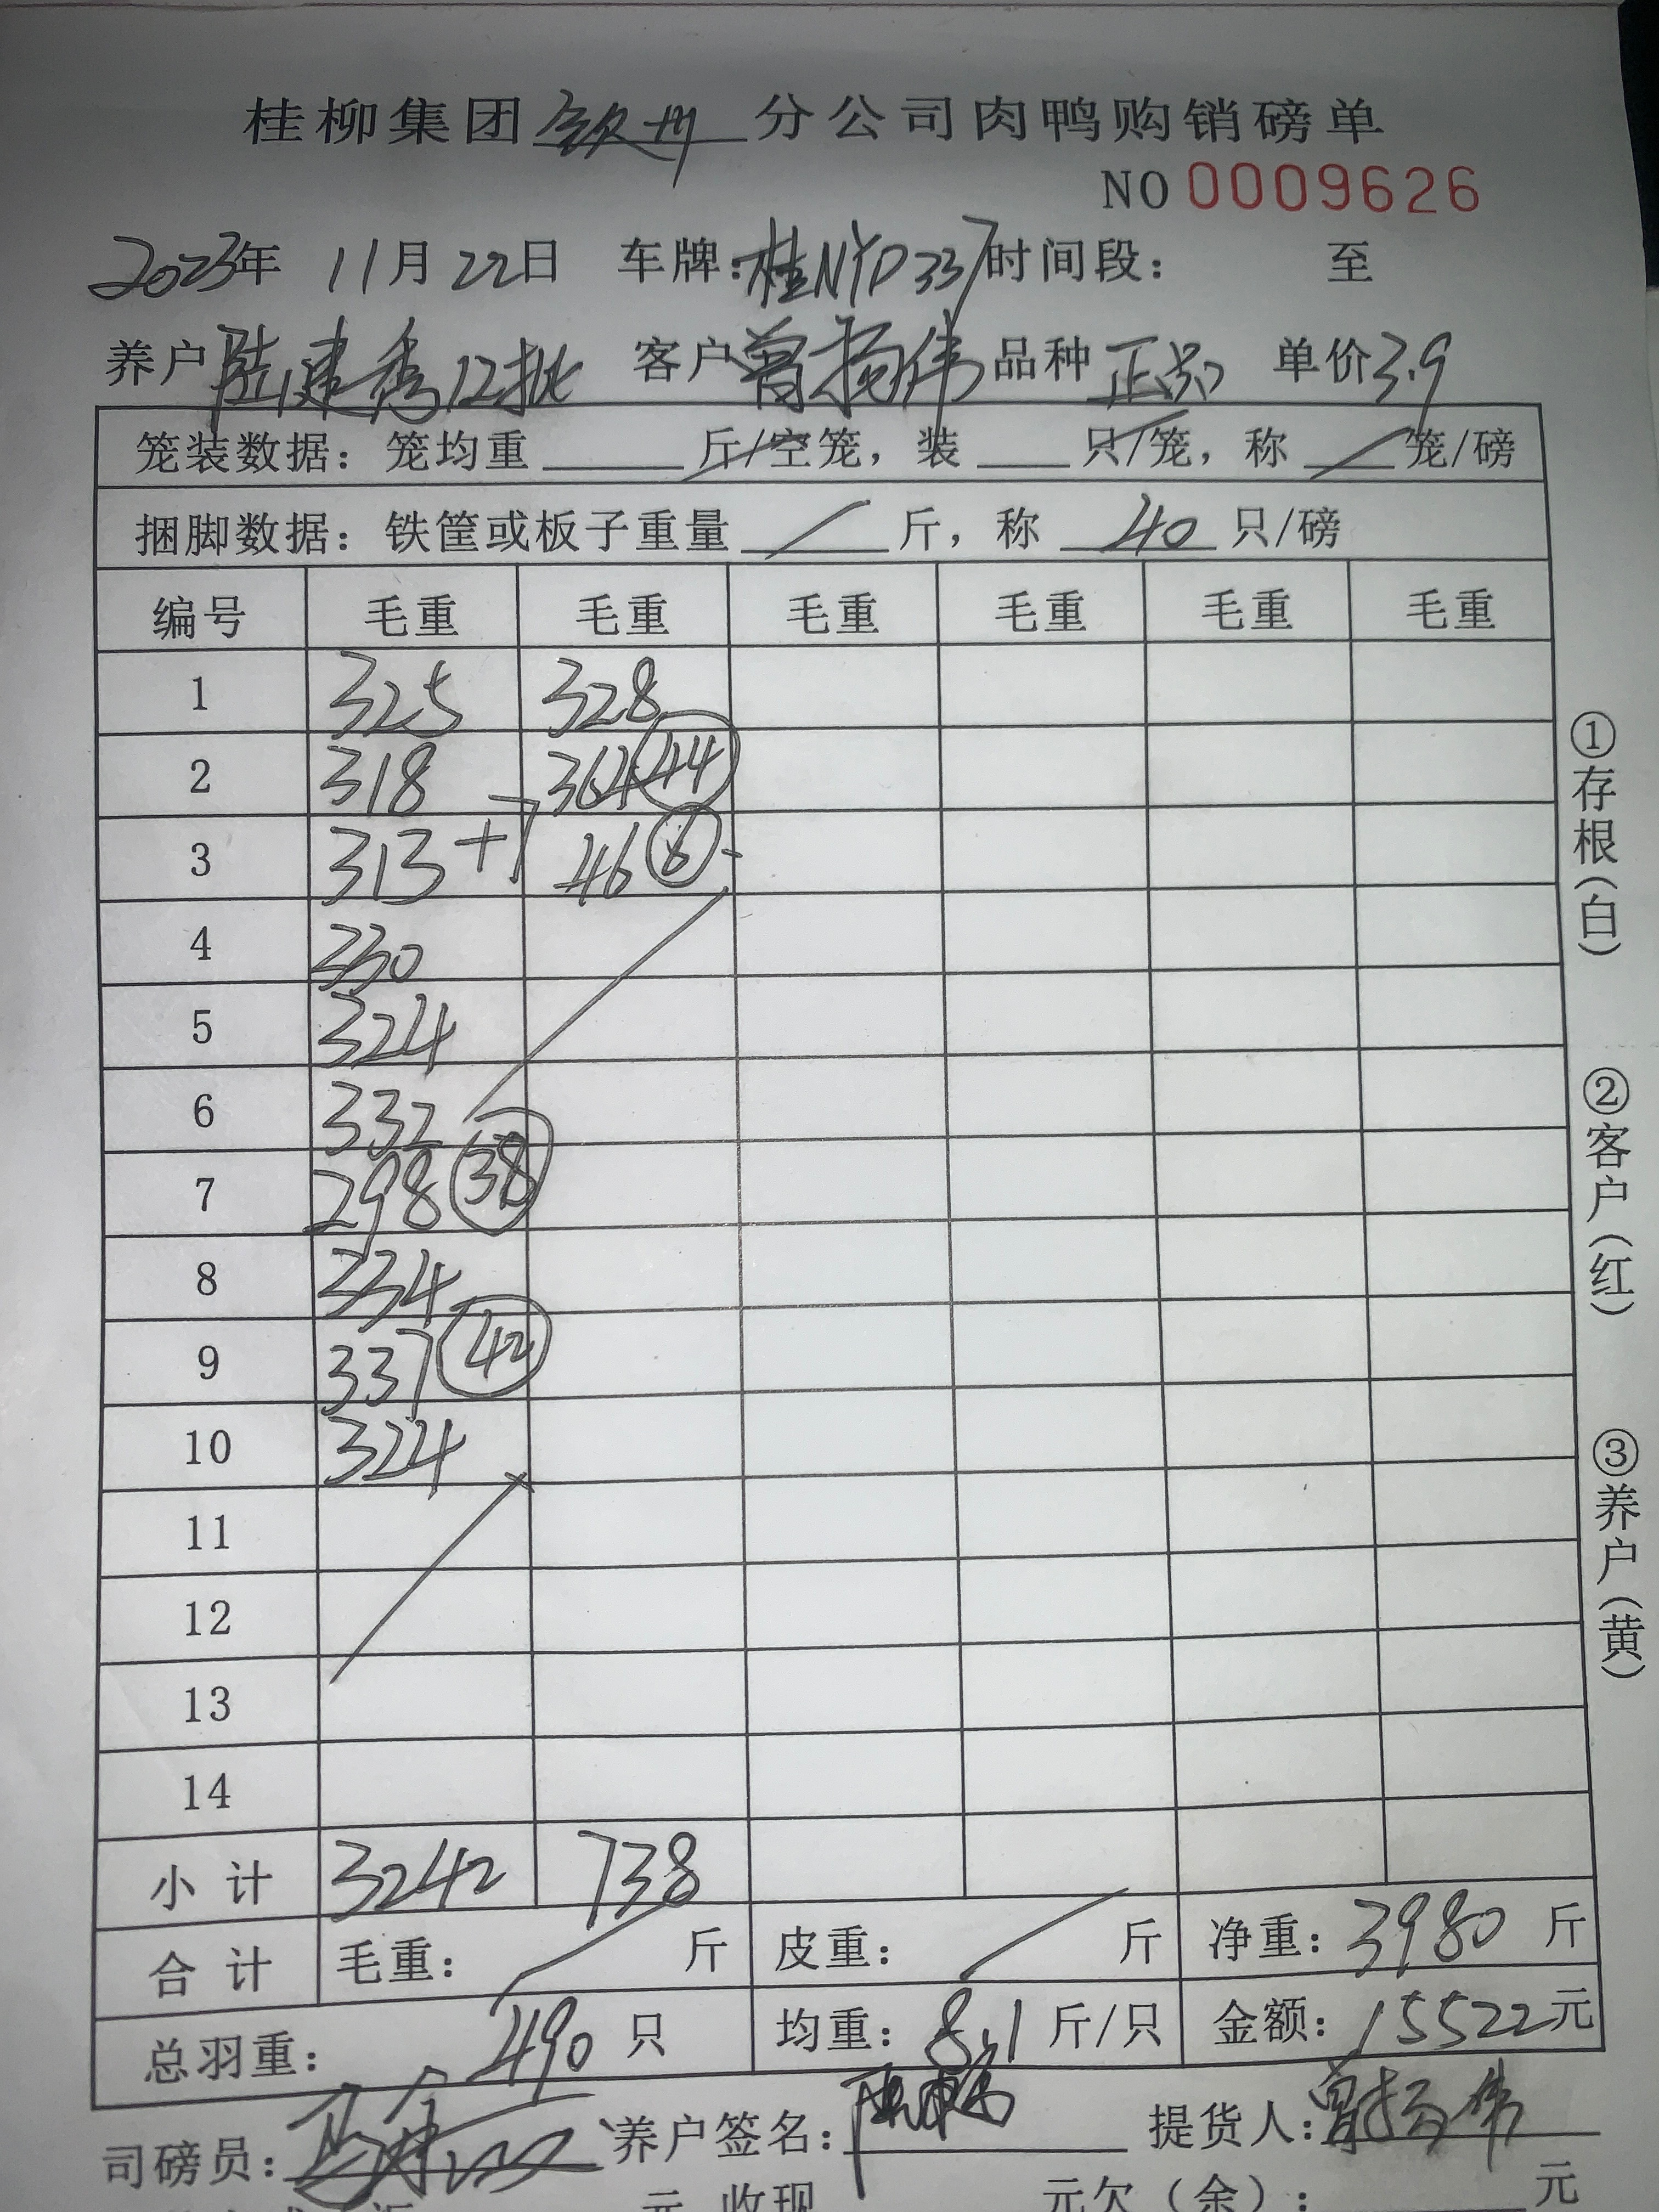 桂柳集团钦州分公司肉鸭购销磅单
NO 0009626
2023年 11月22日 车牌:桂NYD337时间段: 至
养户陆建秀12批 客户曾扬伟品种正品 单价3.9
笼装数据:笼均重 斤/空笼,装 只/笼,称 笼/磅
捆脚数据:铁筐或板子重量 斤,称 40 只/磅
编号 毛重 毛重 毛重 毛重 毛重 毛重
1 325 328
2 318 364 44
3 313 +7 46 6
4 330
5 324
6 332
7 298 38
8 334
9 337 42
10 324
11
12
13
14
小计 3242 738
合计 毛重: 斤 皮重: 斤 净重:3980 斤
总羽重: 490 只 均重:8.1 斤/只 金额:15522元
司磅员: 养户签名: 提货人:曾扬伟
元 收现 元欠(余): 元
①存根(白)
②客户(红)
③养户(黄)